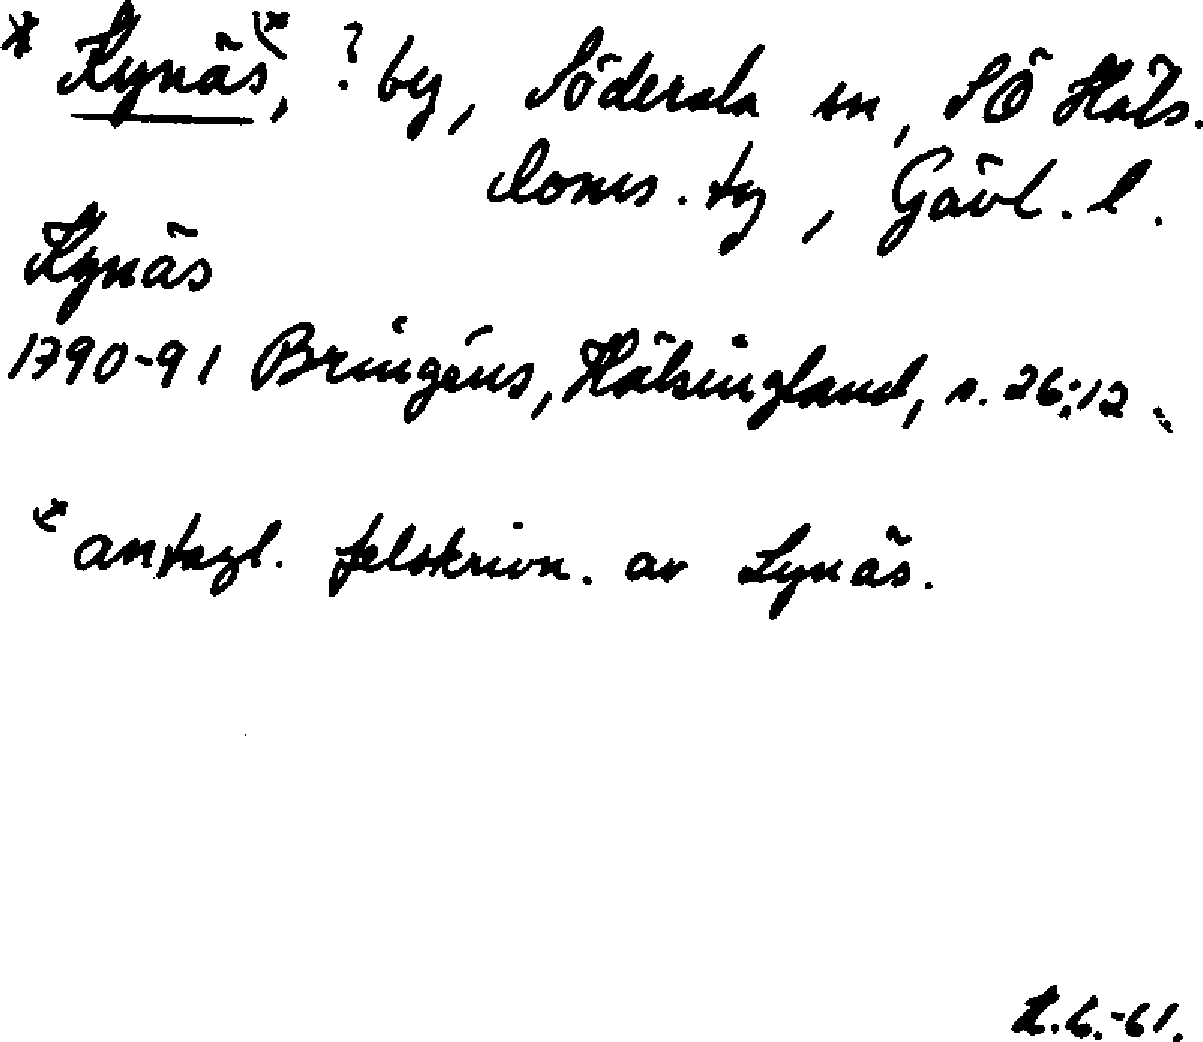 * Kynäs*, ? by, Söderala sn, SÖ Häls.
doms. tg, Gävl. l.
Kynäs
1790-91 Bringéus, Hälsingland, s. 26:12
* antagl. felskrivn. av Lynäs.
L.B.-61.